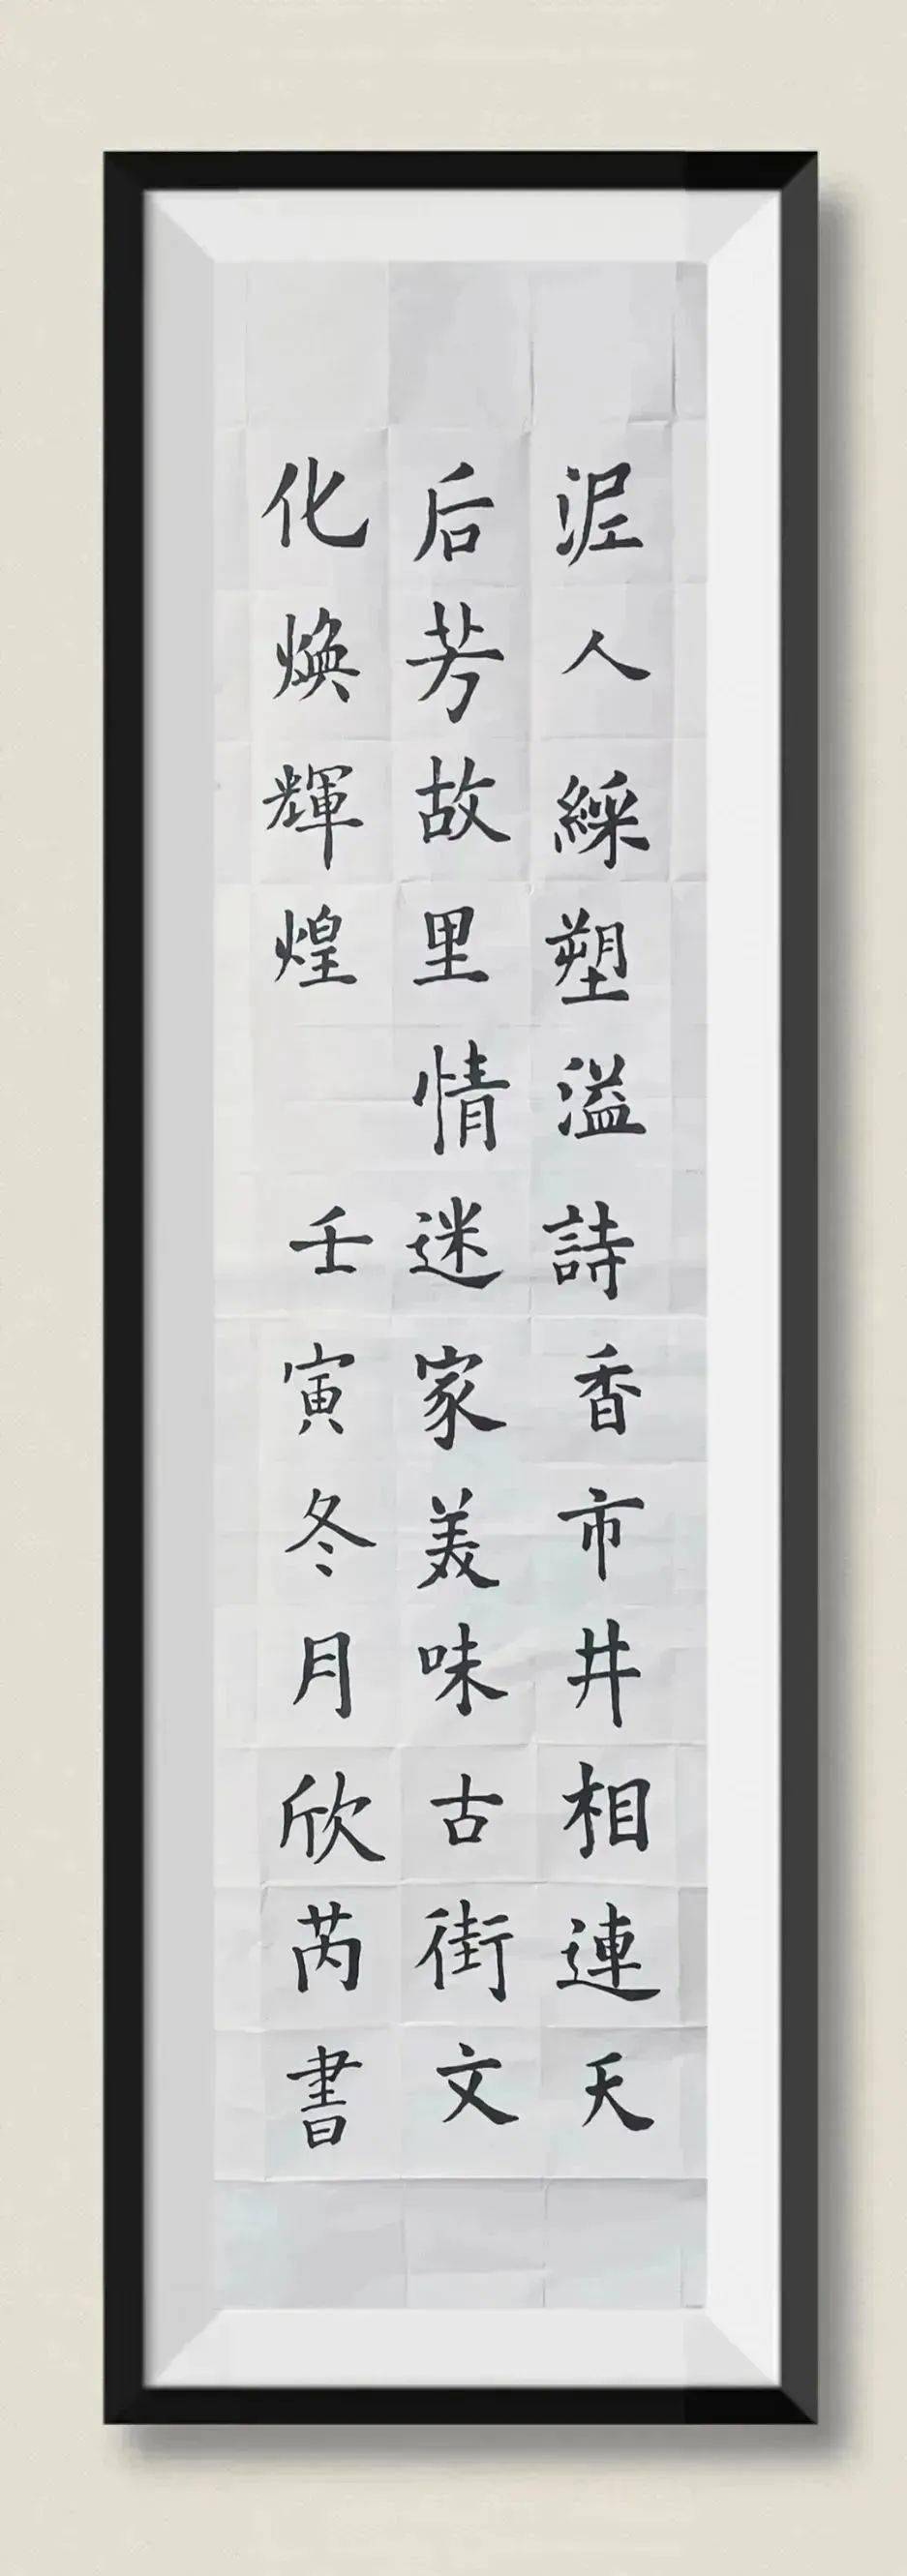 泥人綵塑溢詩香市井相連天
后芳故里情迷家美味古街文
化焕輝煌 壬寅冬月欣芮書